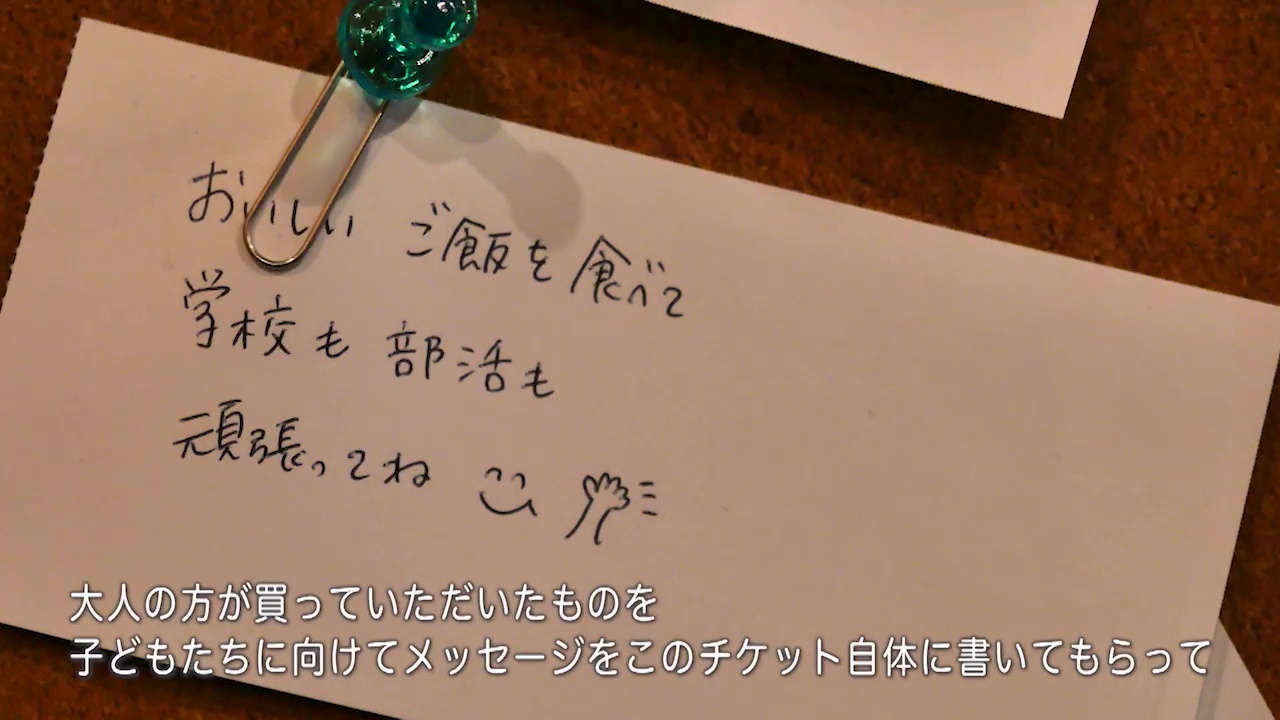 おいしい ご飯を食べて
学校も 部活も
頑張ってね
大人の方が買っていただいたものを
子どもたちに向けてメッセージをこのチケット自体に書いてもらって